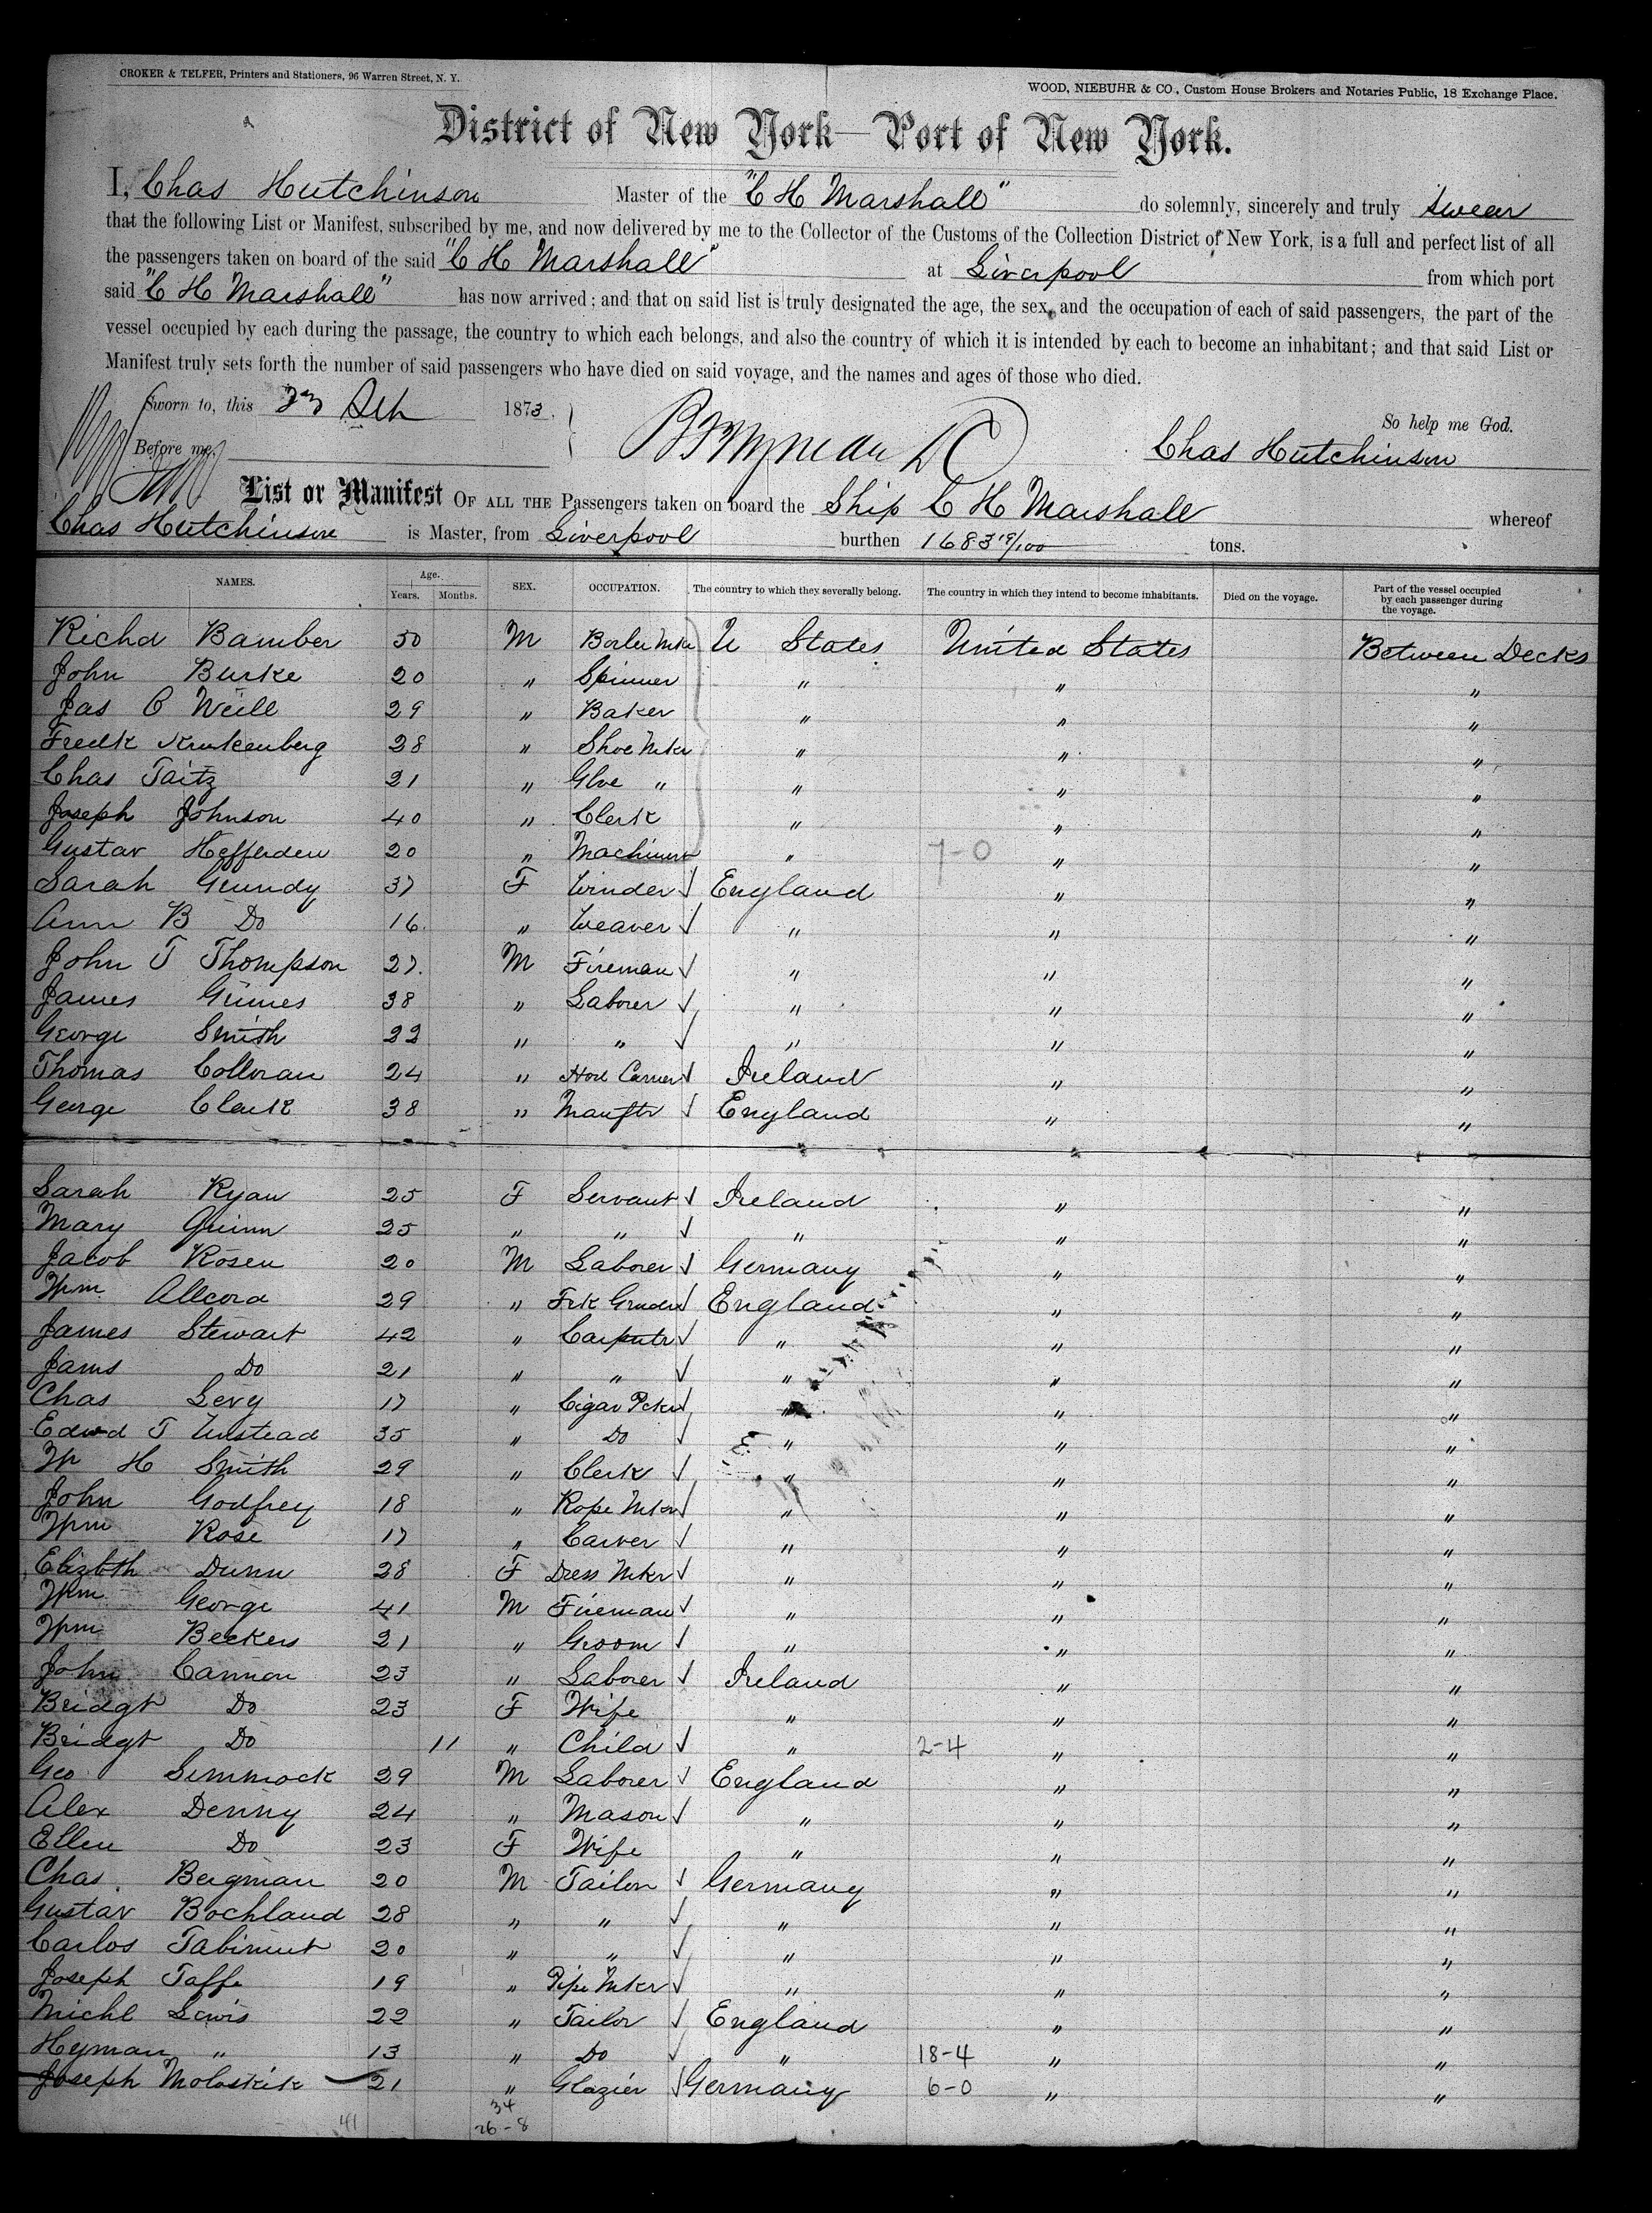 CROKER & TELFER, Printers and Stationers, 96 Warren Street, N. Y.
WOOD, NIEBUHR & CO., Custom House Brokers and Notaries Public, 18 Exchange Place.
District of New York—Port of New York.
I, Chas Hutchinson Master of the "C H Marshall" do solemnly, sincerely and truly swear
that the following List or Manifest, subscribed by me, and now delivered by me to the Collector of the Customs of the Collection District of New York, is a full and perfect list of all
the passengers taken on board of the said "C H Marshall" at Liverpool from which port
said "C H Marshall" has now arrived; and that on said list is truly designated the age, the sex, and the occupation of each of said passengers, the part of the
vessel occupied by each during the passage, the country to which each belongs, and also the country of which it is intended by each to become an inhabitant; and that said List or
Manifest truly sets forth the number of said passengers who have died on said voyage, and the names and ages of those who died.
Sworn to, this 1873. So help me God.
Before me, Chas Hutchinson
List or Manifest OF ALL THE Passengers taken on board the Ship C H Marshall whereof
Chas Hutchinson is Master, from Liverpool burthen 1683 19/100 tons.
NAMES. Age. Years. Months. SEX. OCCUPATION. The country to which they severally belong. The country in which they intend to become inhabitants. Died on the voyage. Part of the vessel occupied by each passenger during the voyage.
Richd Bamber 50 M Boiler Mkr U States United States Between Decks
John Burke 20 " Spinner " " "
Jas O Neill 29 " Baker " " "
Fredk Krukenberg 28 " Shoe Mkr " " "
Chas Taitz 21 " Glve " " " "
Joseph Johnson 40 " Clerk " " "
Gustav Hefferden 20 " Machinist " 7-0 " "
Sarah Grundy 37 F Winder England " "
Ann B Do 16 " Weaver " " "
John T Thompson 27 M Fireman " " "
James Grimes 38 " Laborer " " "
George Smith 22 " " " " "
Thomas Colloran 24 " Hod Carrier Ireland " "
George Clark 38 " Manftr England " "
Sarah Ryan 25 F Servant Ireland " "
Mary Quinn 25 " " " " "
Jacob Rosen 20 M Laborer Germany " "
Wm Allcord 29 " Frk Grinder England " "
James Stewart 42 " Carpntr " " "
Jams Do 21 " " " " "
Chas Levy 17 " Cigar Pcker " " "
Edwd T Unstead 35 " Do " " "
W H Smith 29 " Clerk " " "
John Godfrey 18 " Rope Mkr " " "
Wm Rose 17 " Carver " " "
Elizbth Dunn 28 F Dress Mkr " " "
Wm George 41 M Fireman " " "
Wm Beckers 21 " Groom " " "
John Cannon 23 " Laborer Ireland " "
Bridgt Do 23 F Wife " " "
Bridgt Do 11 " Child " 2-4 " "
Geo Simmock 29 M Laborer England " "
Alex Denny 24 " Mason " " "
Ellen Do 23 F Wife " " "
Chas. Bergman 20 M Tailor Germany " "
Gustav Bochland 28 " " " " "
Carlos Tabirnut 20 " " " " "
Joseph Taffe 19 " Pipe Mkr " " "
Michl Lewis 22 " Tailor England " "
Hyman " 13 " Do " 18-4 " "
Joseph Moloskik 21 " Glazier Germany 6-0 " "
41 34
26-8